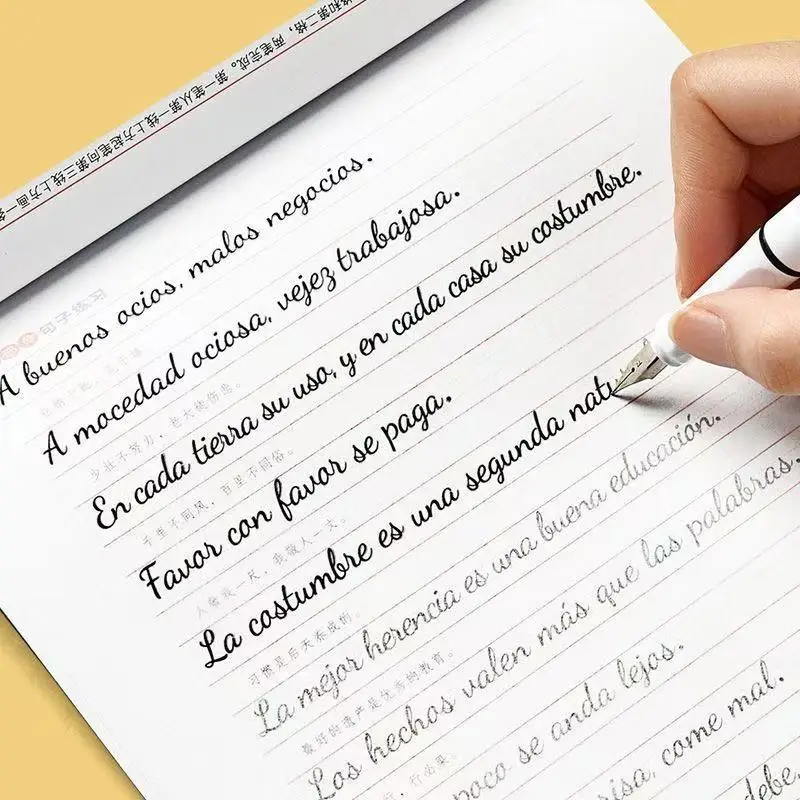 格和第二格，两笔完成。第一笔从第一线上方起笔向第三线上方画一条
句子练习
A buenos ocios, malos negocios.
A mocedad ociosa, vejez trabajosa.
少壮不努力，老大徒伤悲。
En cada tierra su uso, y en cada casa su costumbre.
千里不同风，百里不同俗。
Favor con favor se paga.
人敬我一尺，我敬人一丈。
La costumbre es una segunda natu
习惯是后天养成的。
La mejor herencia es una buena educación.
最好的遗产是优秀的教育。
Los hechos valen más que las palabras.
poco se anda lejos.
isa, come mal.
debe,